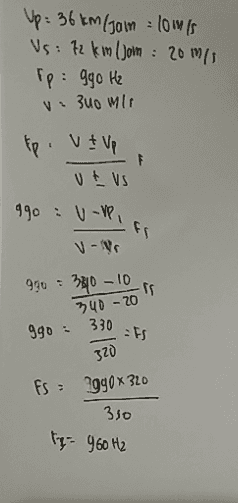 Vp = 36 km/jam = 10 m/s
Vs = 72 km/jam = 20 m/s
Fp = 990 Hz
v = 340 m/s
Fp = V ± Vp F
V ± Vs
990 = V - Vp Fs
V - Vs
990 = 340 - 10 Fs
340 - 20
990 = 330 = Fs
320
Fs = 990 x 320
330
Fs = 960 Hz